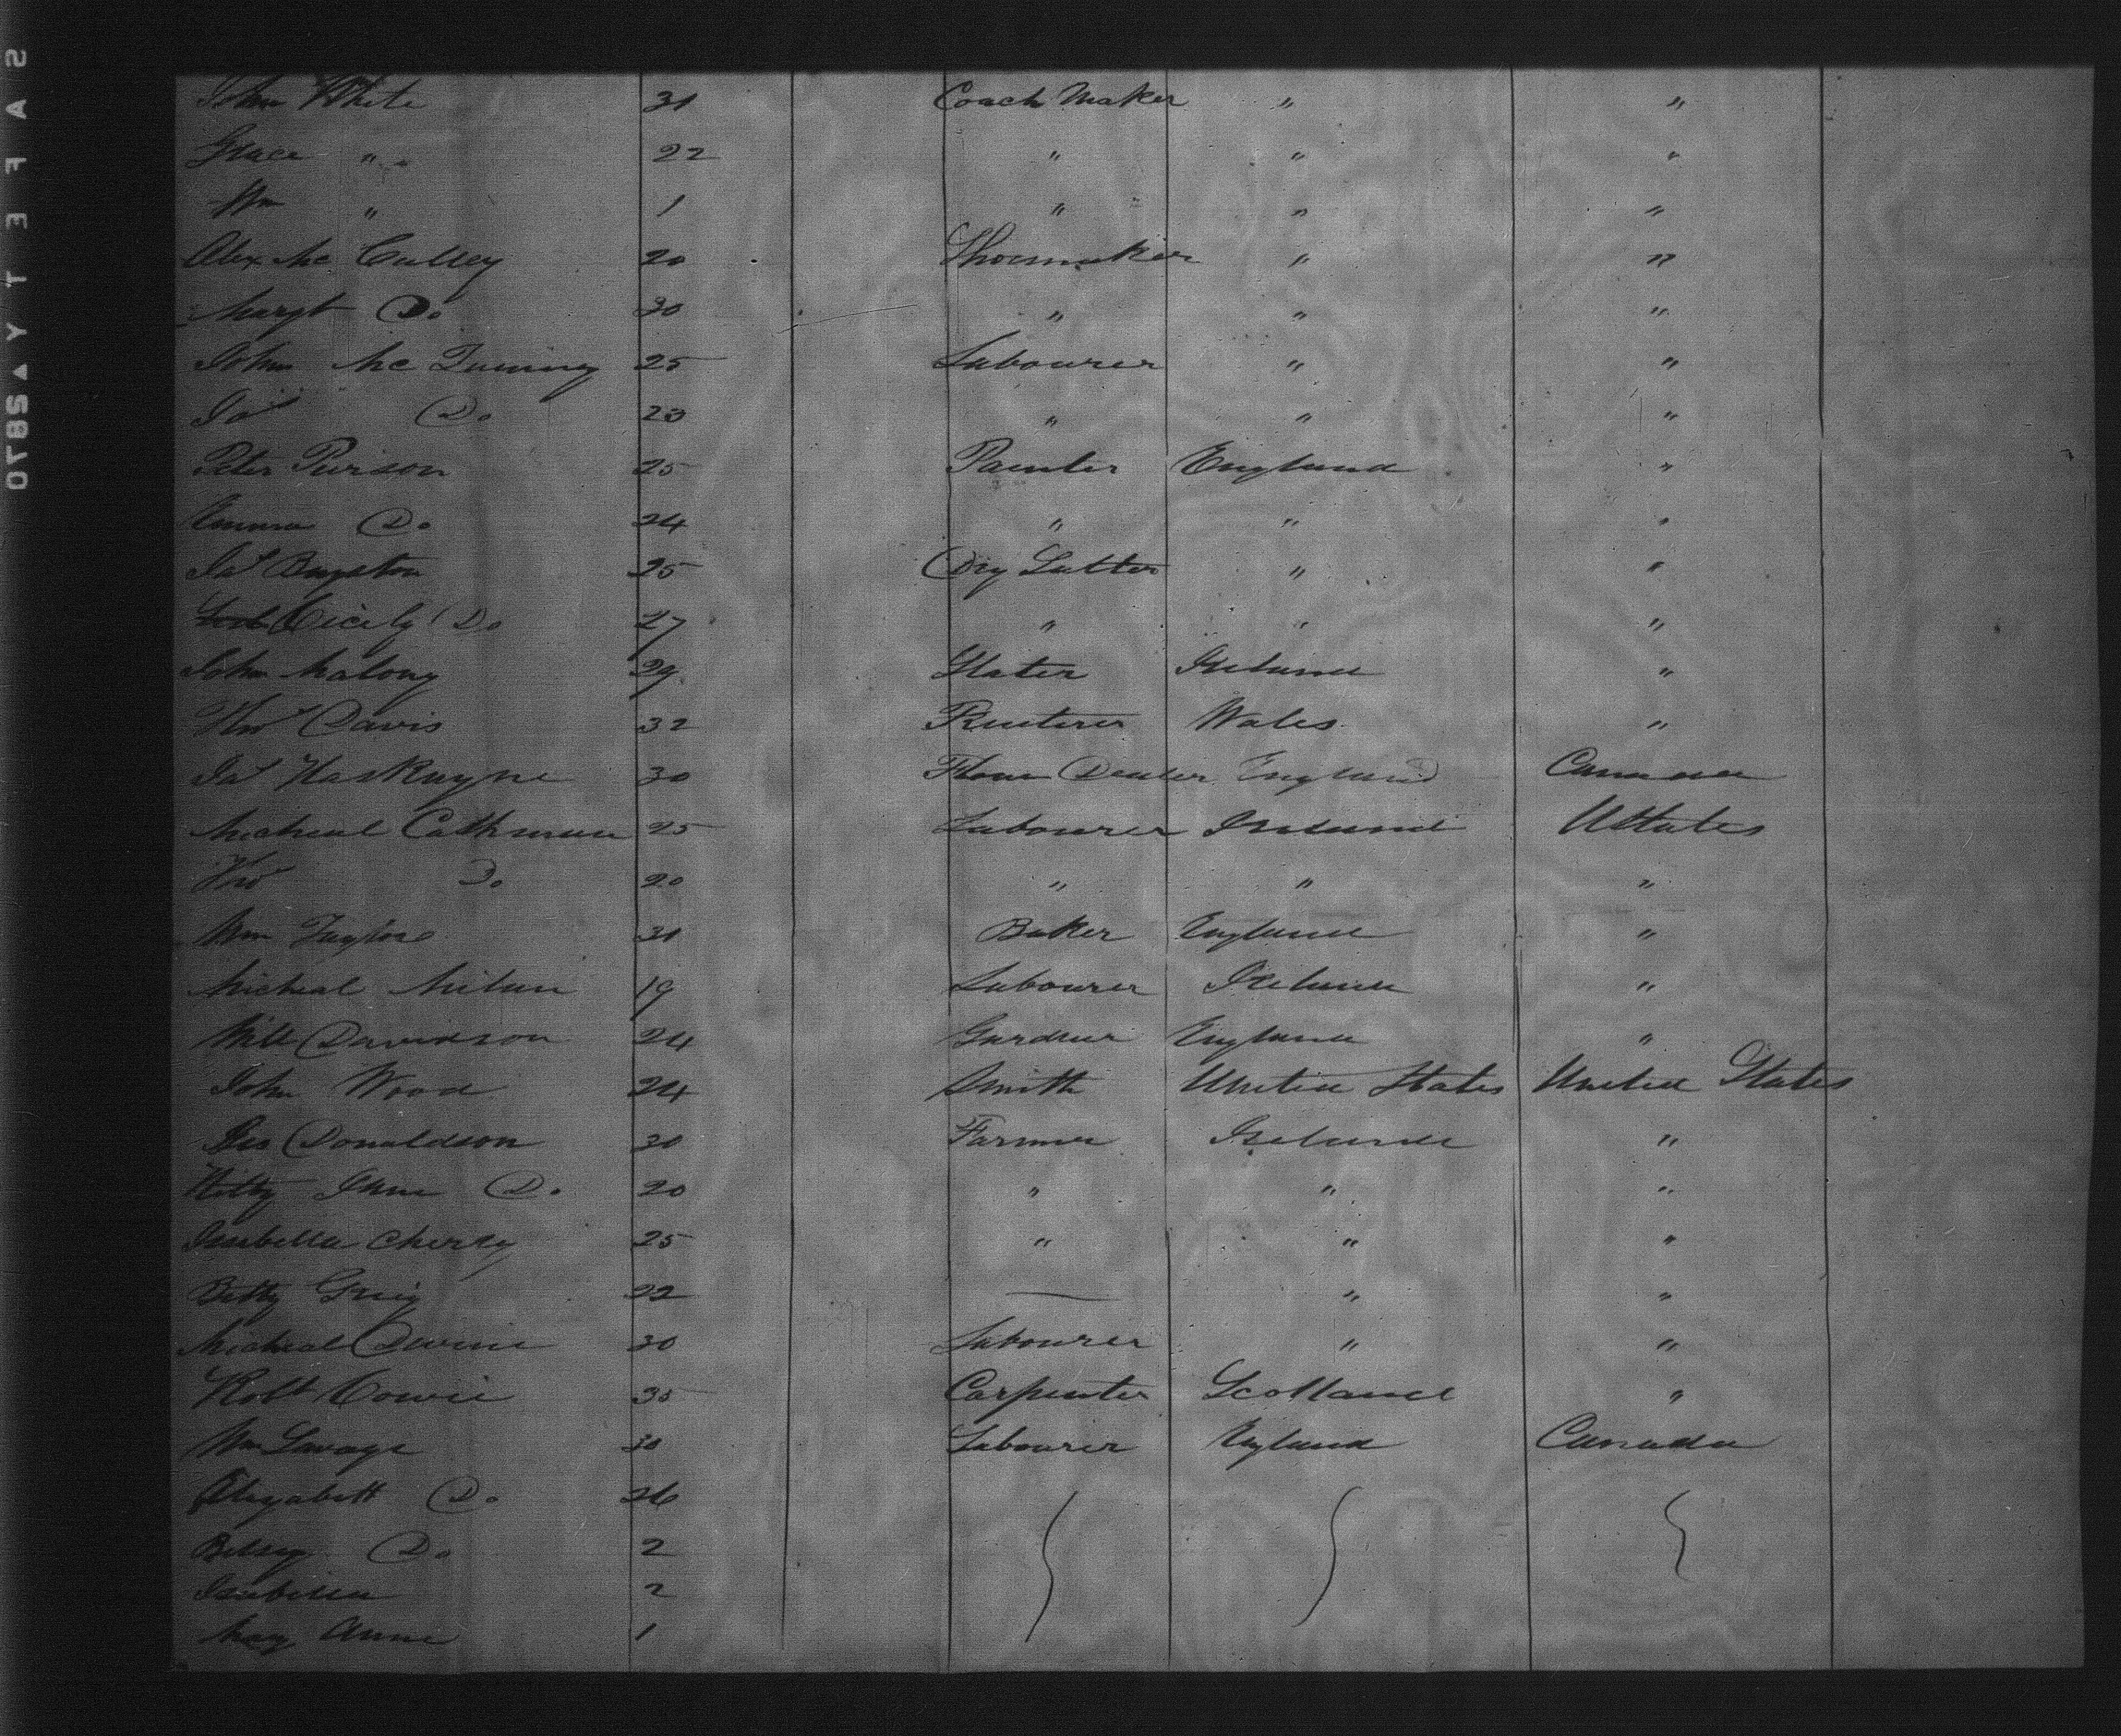 John White 31 Coach Maker " "
Grace " 22 " " "
Wm " 1 " " "
Alex Mc Culley 20 Shoemaker " "
Margt Do 30 " " "
John Mc 25 Labourer " "
Do 23 " " "
Peter Peirson 25 Painter England "
Emma Do 24 " " "
Jas 25 Dry "
Cicily Do 27 " " "
John Malony 29 Slater Ireland "
Thos Davis 32 Wales "
Jas Haskayne 30 Flour Dealer England Canada
Micheal 25 Labourer Ireland UStates
Thos Do 20 " " "
Wm Taylore 31 Baker England "
Micheal 19 Labourer Ireland "
Will Davidson 24 Gardner England "
John Wood 24 Smith United States United States
Donaldson 30 Farmer Ireland "
Kitty Jane Do 20 " " "
Isabella Cherry 25 " " "
Betty Greig 22 — " "
Micheal Devine 30 Labourer " "
Robt Cowie 35 Carpenter Scotland "
Wm Savage 30 Labourer England Canada
Elizabett Do 26
Betsey Do 2
Isabella 2
May Anne 1
SAFETY ▲ 2870